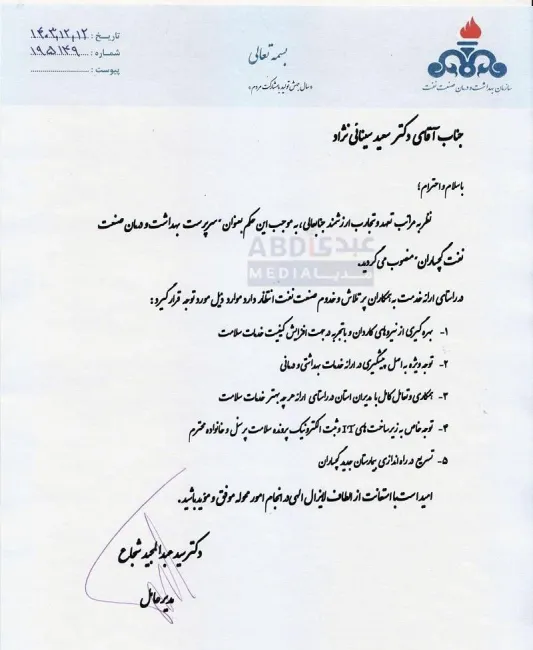 بسمه تعالی
«سال جهش تولید با مشارکت مردم»
تاریخ : ۱۴۰۳,۱۲,۱۲
شماره : ۱۹۵۱۴۹
پیوست :
سازمان بهداشت و درمان صنعت نفت
جناب آقای دکتر سعید سینائی نژاد
با سلام و احترام؛
نظر به مراتب تعهد و تجارب ارزشمند جنابعالی، به موجب این حکم بعنوان "سرپرست بهداشت و درمان صنعت
نفت گچساران" منصوب می گردید.
عبدی ABDI
MEDIA مدیا
در راستای ارائه خدمت به همکاران پر تلاش و خدوم صنعت نفت انتظار دارد موارد ذیل مورد توجه قرار گیرد :
۱- بهره گیری از نیروهای کاردان و با تجربه در جهت افزایش کیفیت خدمات سلامت
۲- توجه ویژه به اصل پیشگیری در ارائه خدمات بهداشتی و درمانی
۳- همکاری و تعامل کامل با مدیران استان در راستای ارائه هرچه بهتر خدمات سلامت
۴- توجه خاص به زیرساخت های IT و ثبت الکترونیک پرونده سلامت پرسنل و خانواده محترم
۵- تسریع در راه اندازی بیمارستان جدید گچساران
امید است با استعانت از الطاف لایزال الهی در انجام امور محوله موفق و مؤید باشید.
دکتر سید عبدالمجید شجاع
مدیرعامل